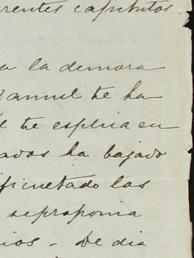 rentes capitulos
a la demora
Manuel te ha
te esplica en
ados ha bajado
las
se proponia
ios - De dia